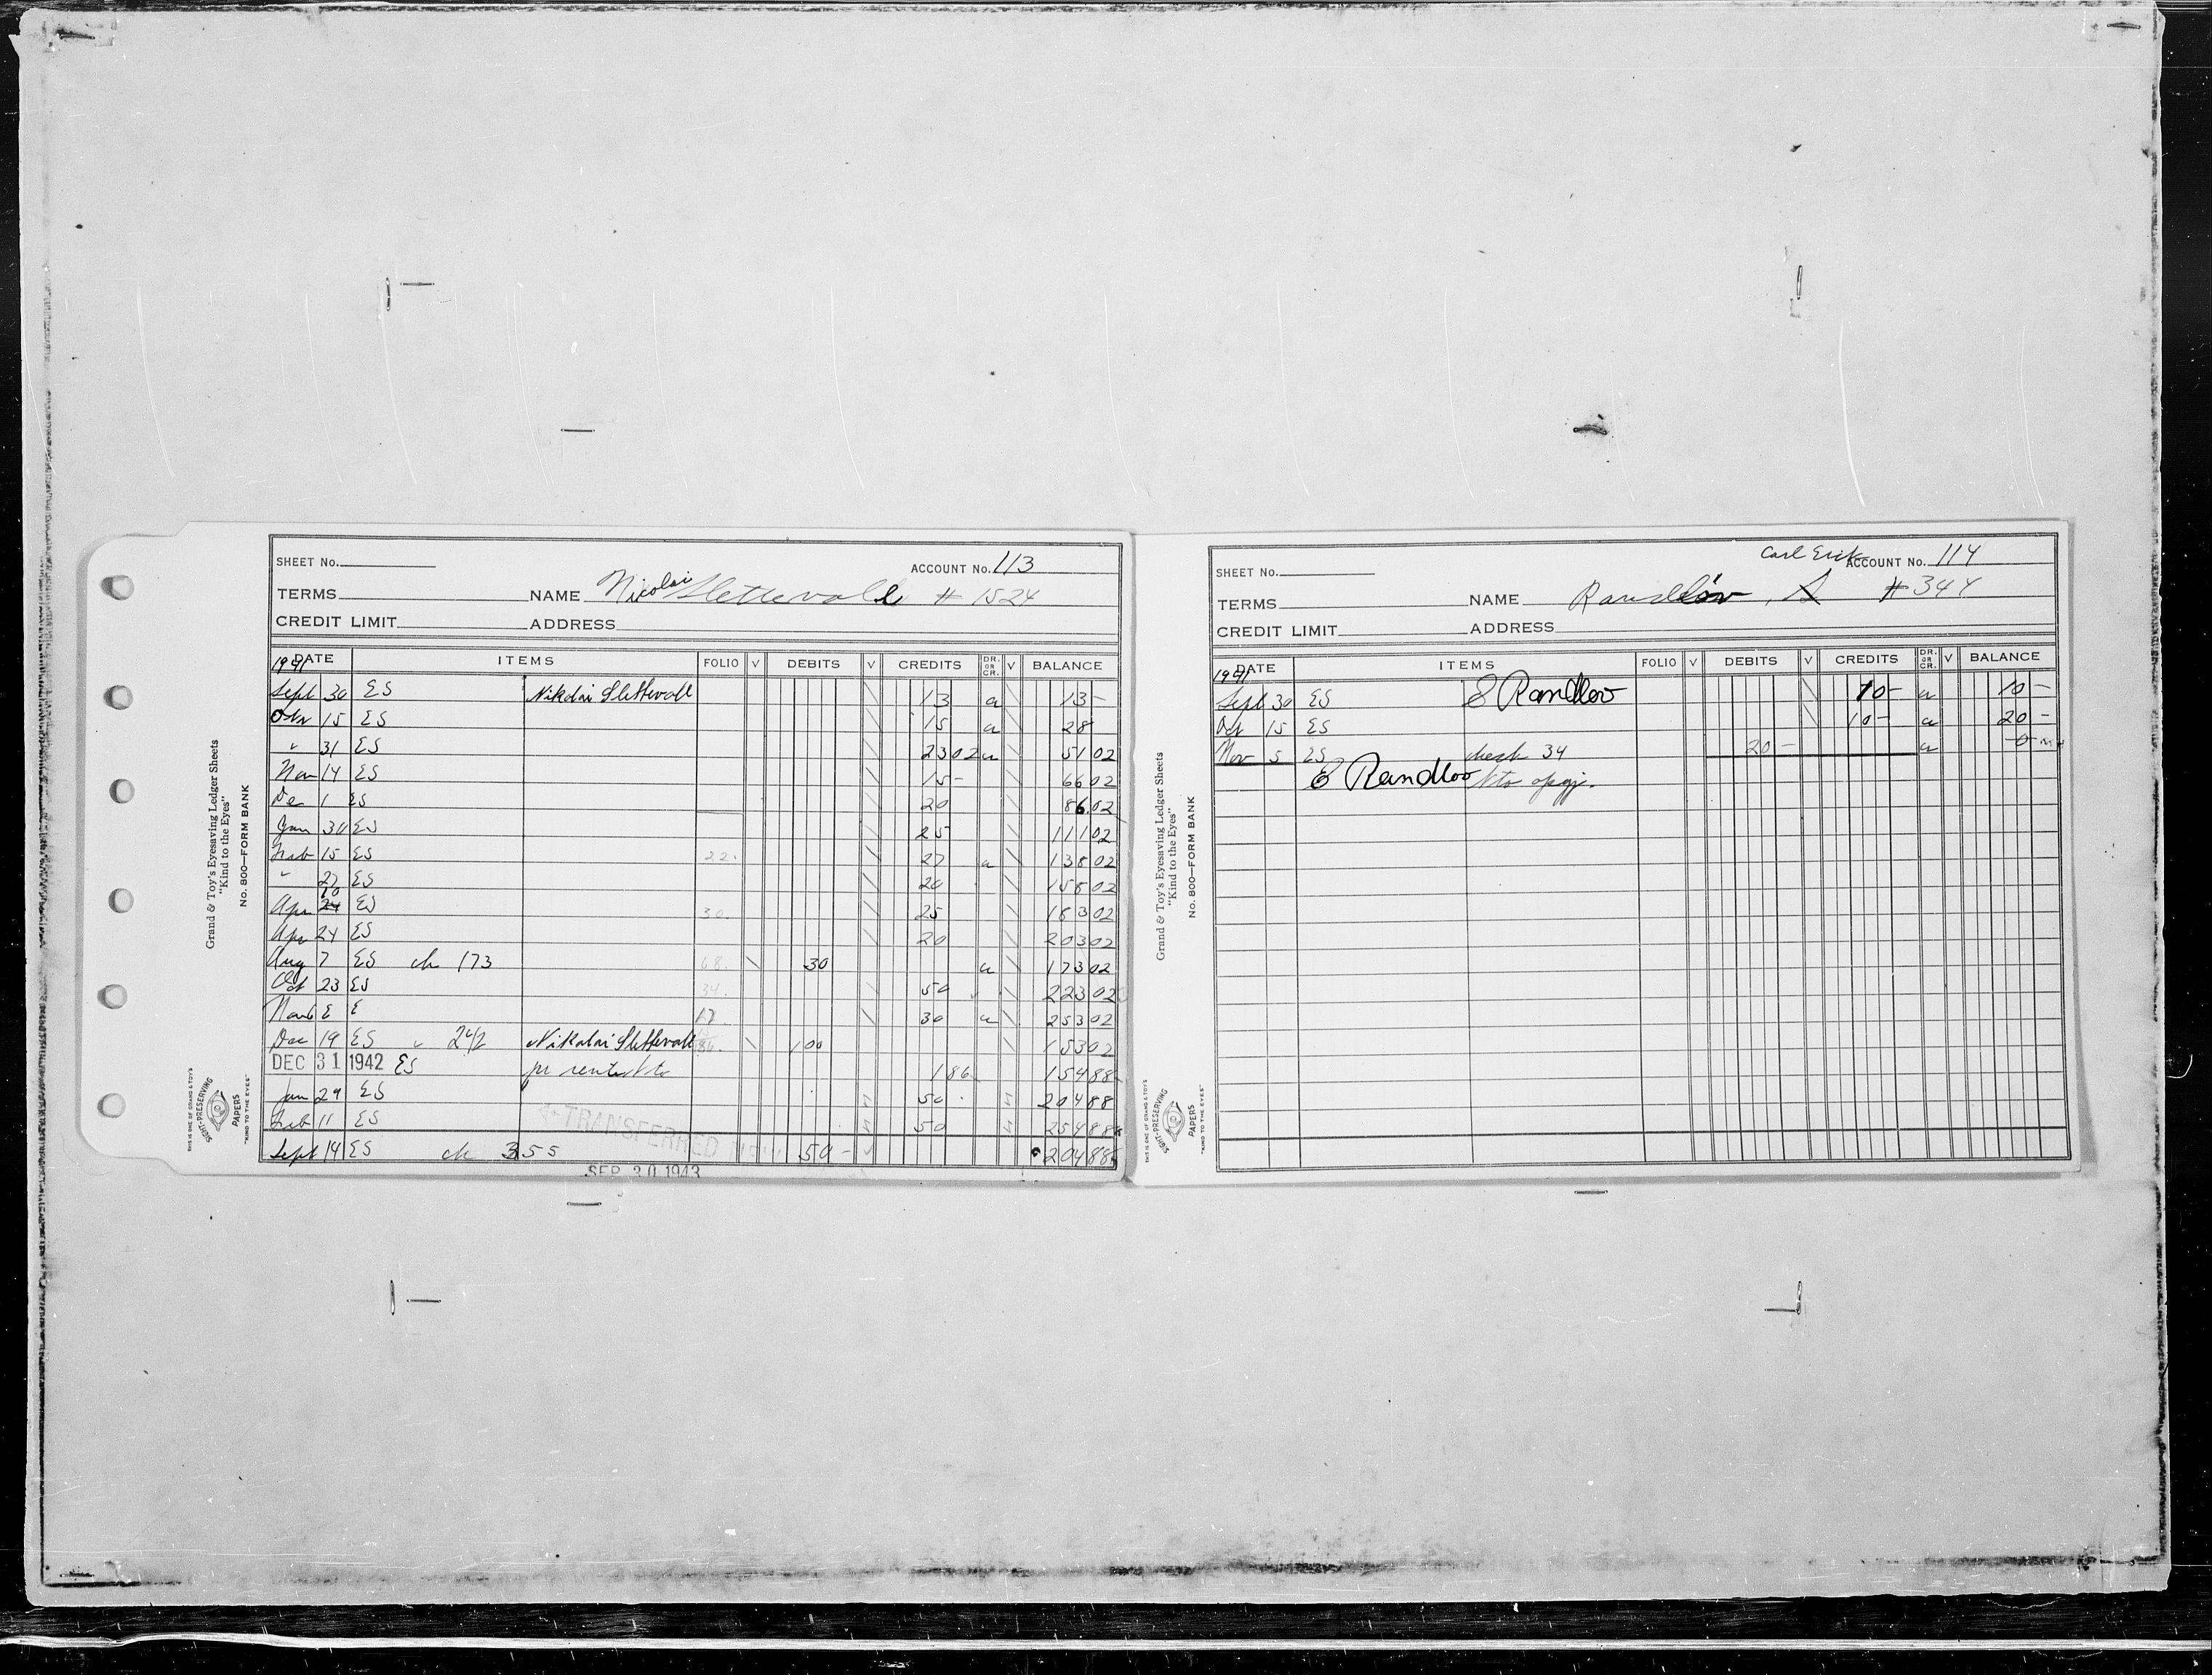 SHEET No. ACCOUNT No. 113
TERMS NAME Nicolai Slettevoll # 1524
CREDIT LIMIT ADDRESS
1941 DATE ITEMS FOLIO V DEBITS V CREDITS DR. OR CR. V BALANCE
Sept 30 ES Nikolai Slettevoll 13 13 -
15 ES 15 28
" 31 ES 23 02 51 02
Nov 14 ES 15 - 66 02
De 1 ES 20 86.02
Jan 30 ES 25 111 02
Feb 15 ES 22. 27 138 02
" 27 ES 20 158 02
Apr 10 ES 30. 25 183 02
Apr 24 ES 20 203 02
Aug 7 ES ch 173 68. 30 173 02
Oct 23 ES 34. 50 223 02
Nov 6 E 17 30 253 02
Dec 19 ES " 242 Nikolai Slettevoll 86. 100 153 02
DEC 31 1942 ES pr rentekto 1 86 154 88
Jan 29 ES 50 204 88
Feb 11 ES 50 254 88
TRANSFERRED
Sept 14 ES ch 355 50 - 204 88
SEP 30 1943
Grand & Toy's Eyesaving Ledger Sheets
"Kind to the Eyes"
No. 800—FORM BANK
THIS IS ONE OF GRAND & TOY'S
SIGHT-PRESERVING
PAPERS
"KIND TO THE EYES"
SHEET No. Carl Erik ACCOUNT No. 114
TERMS NAME Randløv, # 344
CREDIT LIMIT ADDRESS
1941 DATE ITEMS FOLIO V DEBITS V CREDITS DR. OR CR. V BALANCE
Sept 30 ES E Randlov 10 - 10 -
Oct 15 ES 10 - 20 -
Nov 5 ES check 34 20 - 0
E Randlov kto opgj.
Grand & Toy's Eyesaving Ledger Sheets
"Kind to the Eyes"
No. 800—FORM BANK
THIS IS ONE OF GRAND & TOY'S
SIGHT-PRESERVING
PAPERS
"KIND TO THE EYES"